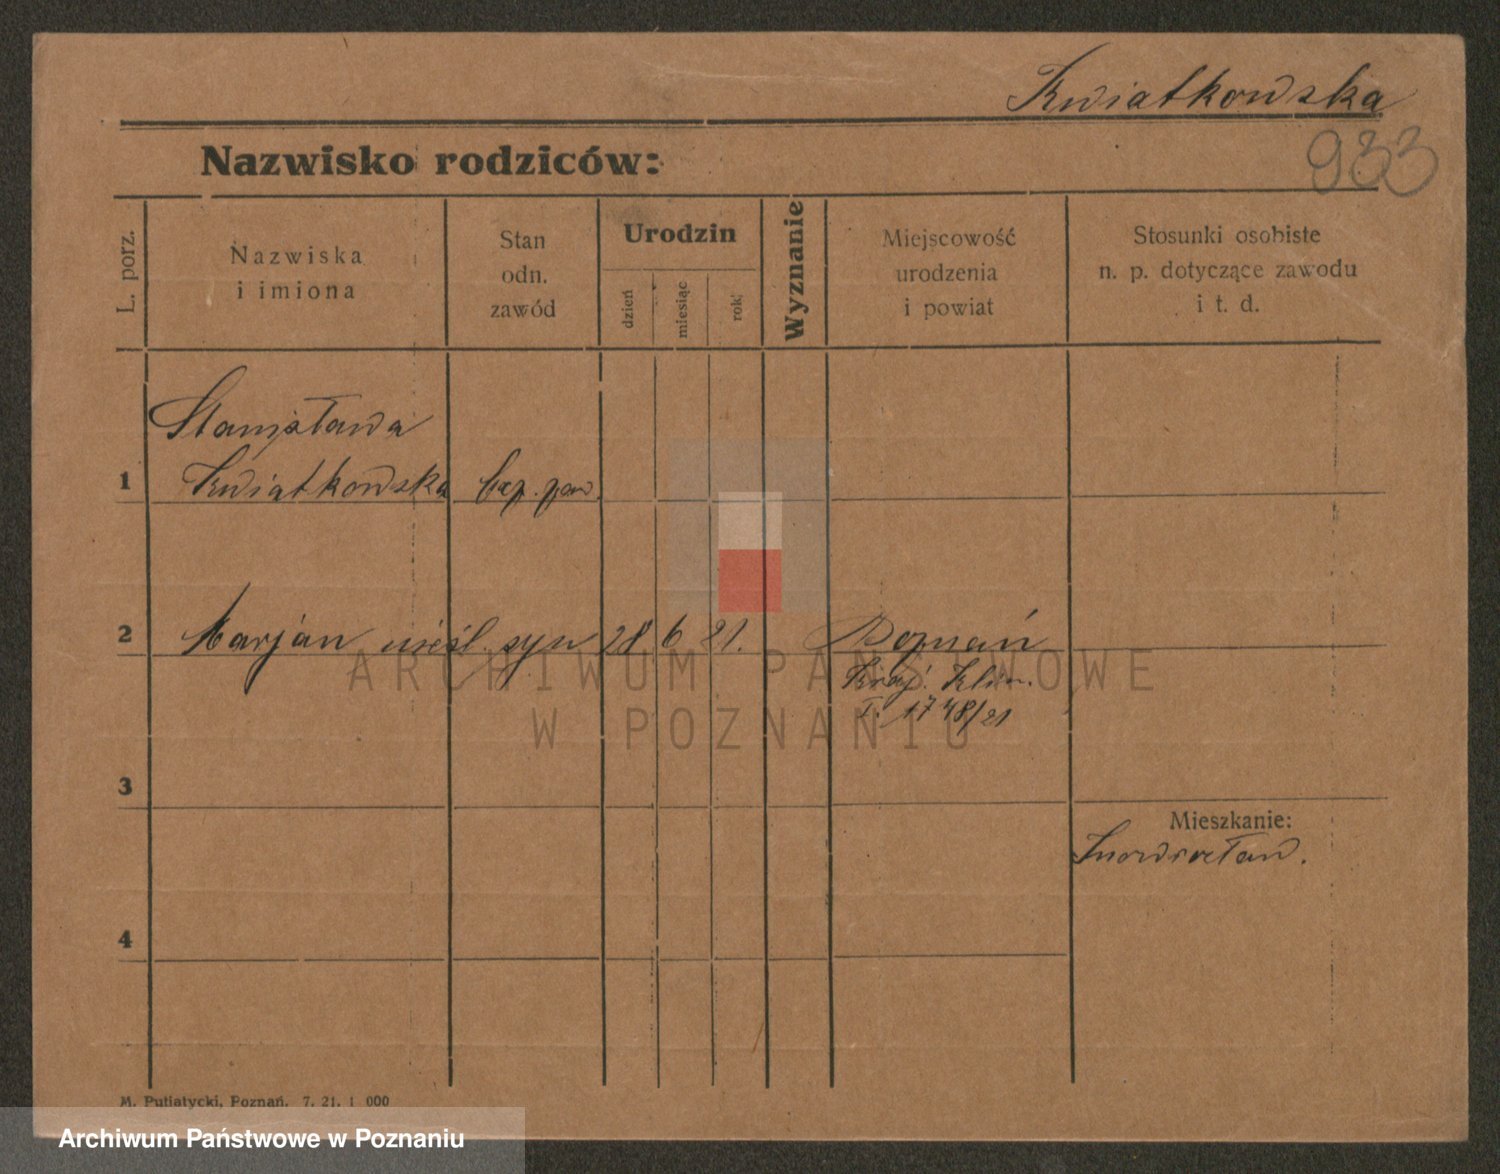 Kwiatkowska
933
Nazwisko rodziców:
L. porz.
Nazwiska
i imiona
Stan
odn.
zawód
Urodzin
dzień
miesiąc
rok
Wyznanie
Miejscowość
urodzenia
i powiat
Stosunki osobiste
n. p. dotyczące zawodu
i t. d.
Stanisława
1 Kwiatkowska
2 Marjan nieśl. syn 28 6 21. Poznań
Klin.
1748/21
3
Mieszkanie:
Inowrocław.
4
M. Putiatycki, Poznań. 7. 21. 1 000
ARCHIWUM PAŃSTWOWE
W POZNANIU
Archiwum Państwowe w Poznaniu